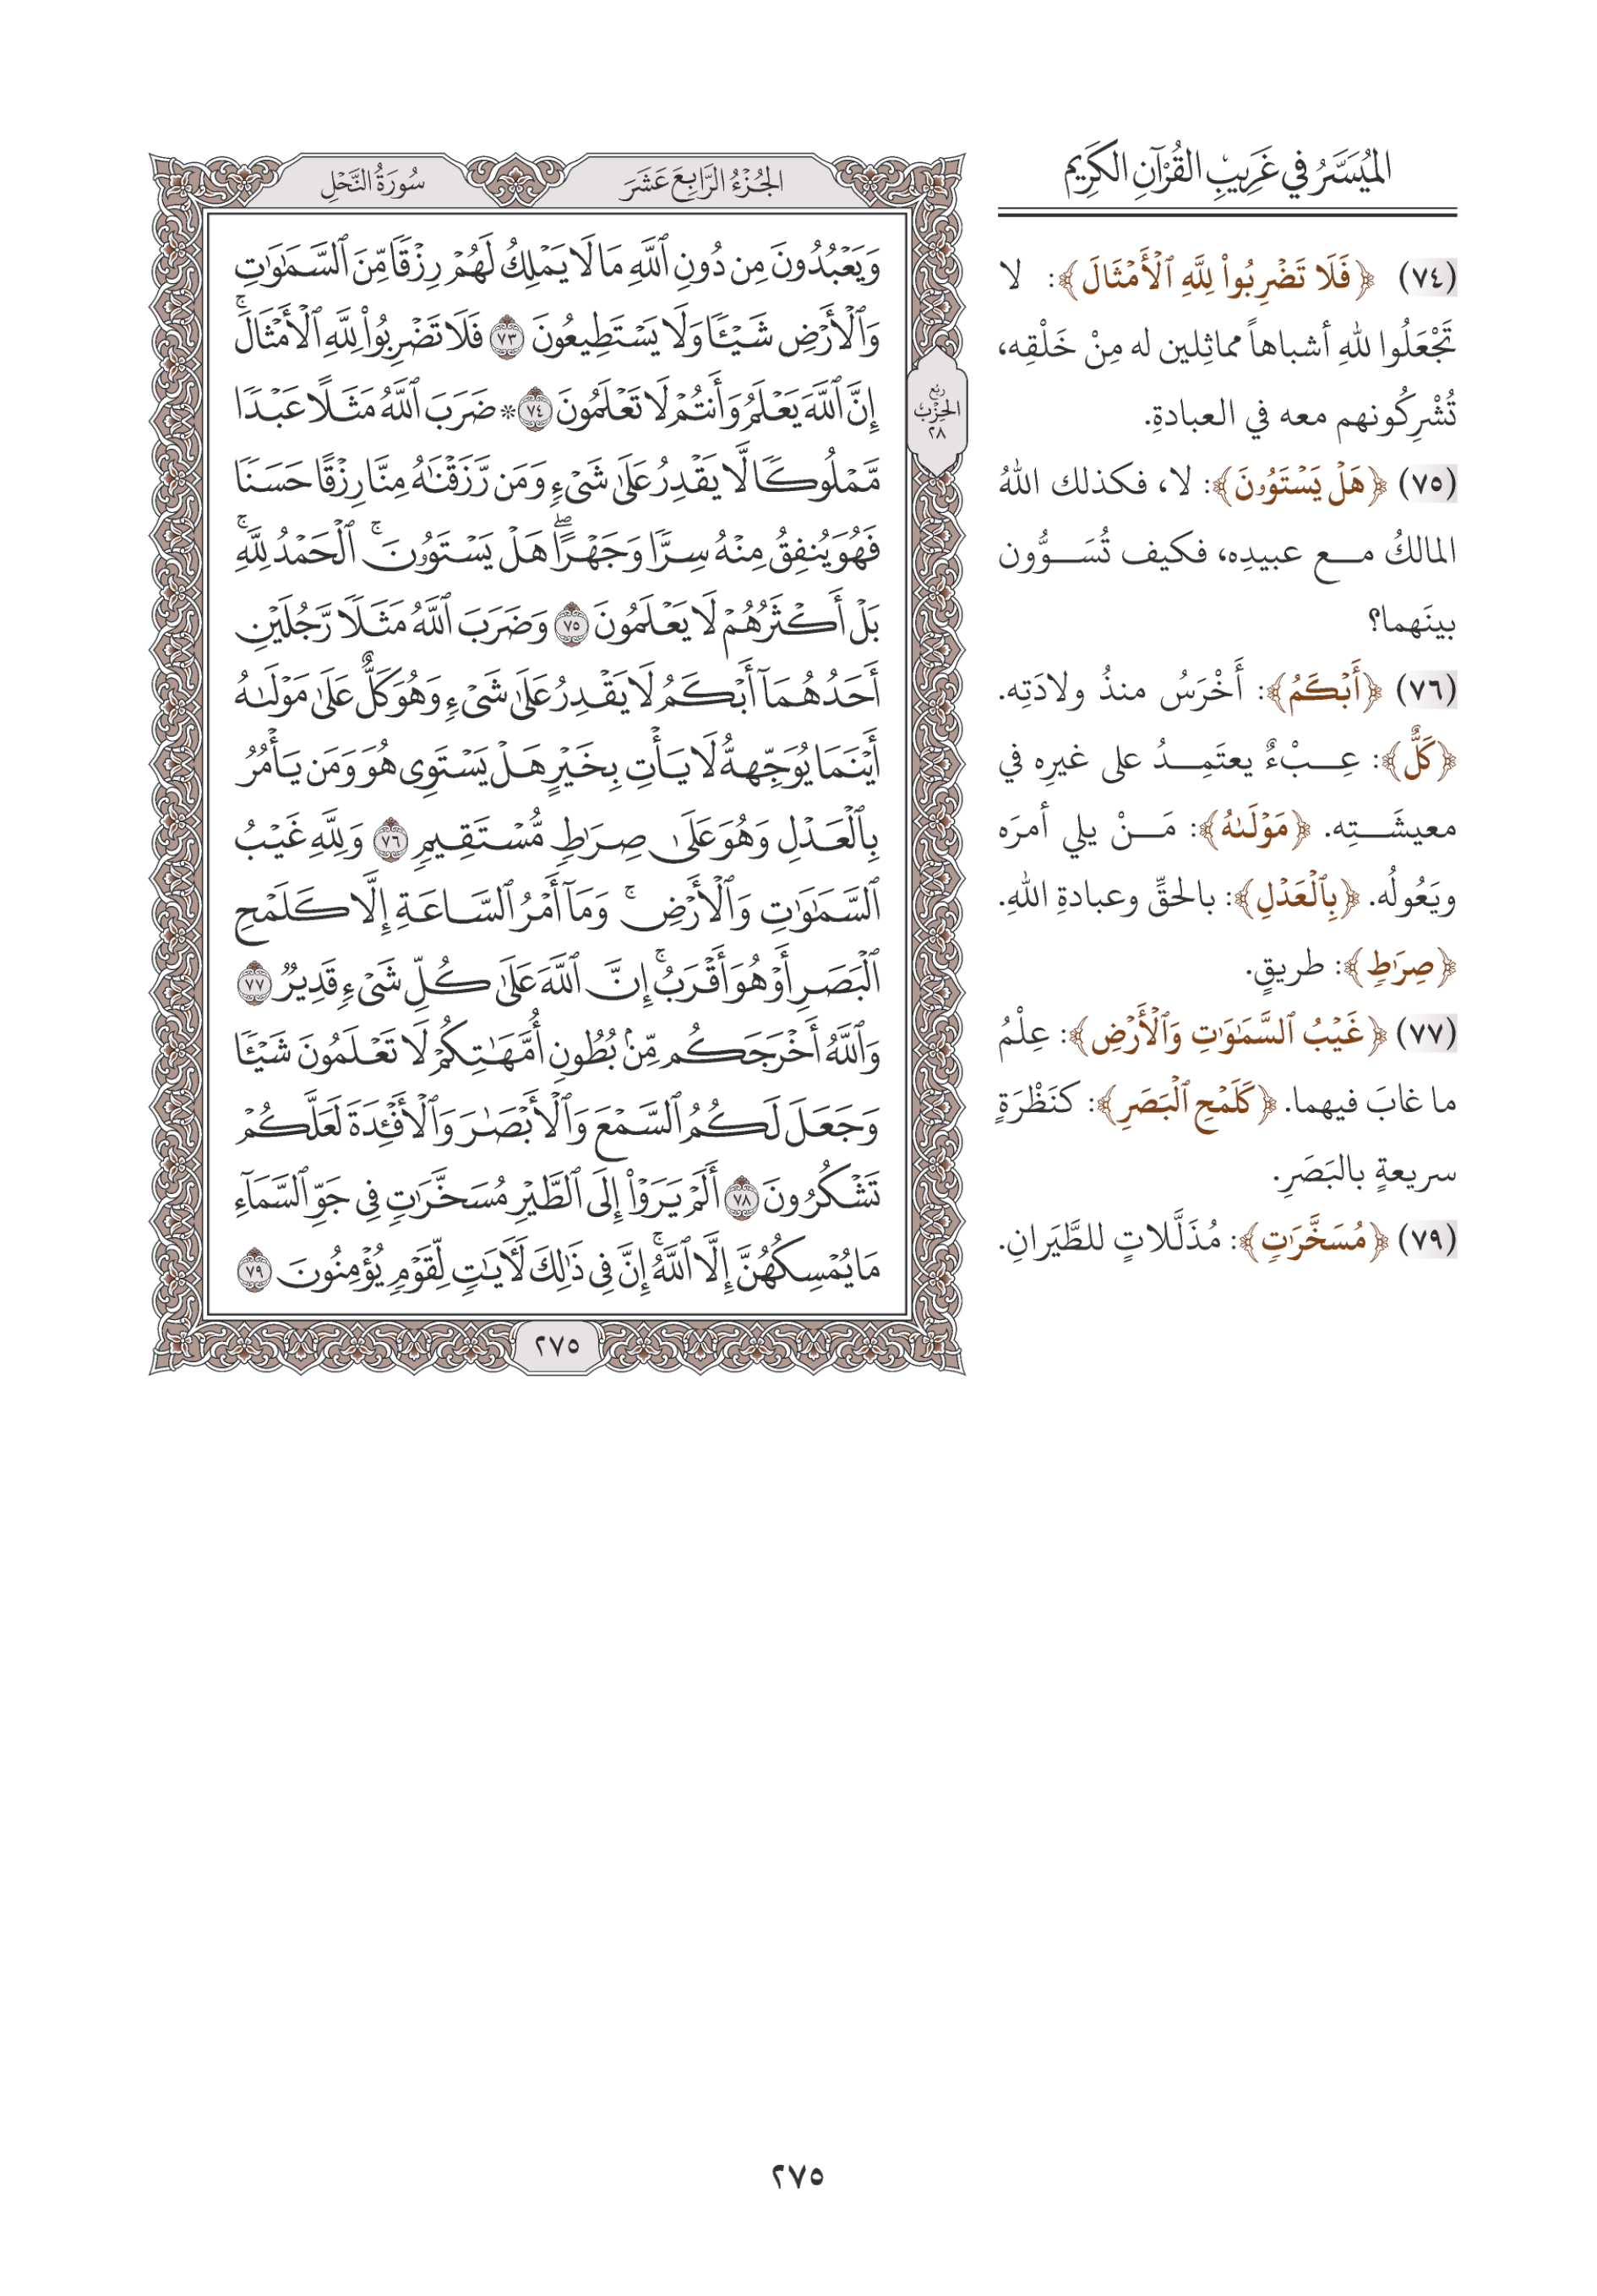 الميُسَّرُ في غَرِيبِ القُرْآنِ الكَرِيم
(٧٤) ﴿فَلَا تَضْرِبُوا۟ لِلَّهِ ٱلْأَمْثَالَ﴾: لا
تَجْعَلُوا للهِ أشباهاً مماثِلين له مِنْ خَلْقِه،
تُشْرِكُونهم معه في العبادةِ.
(٧٥) ﴿هَلْ يَسْتَوُۥنَ﴾: لا، فكذلك اللهُ
المالكُ مـع عبيدِه، فكيف تُسَـوُّون
بينَهما؟
(٧٦) ﴿أَبْكَمُ﴾: أَخْرَسُ منذُ ولادَتِه.
﴿كَلٌّ﴾: عِـبْءٌ يعتَمِـدُ على غيرِه في
معيشَـتِه. ﴿مَوْلَىٰهُ﴾: مَـنْ يلي أمرَه
ويَعُولُه. ﴿بِٱلْعَدْلِ﴾: بالحقِّ وعبادةِ اللهِ.
﴿صِرَٰطٍ﴾: طريقٍ.
(٧٧) ﴿غَيْبُ ٱلسَّمَٰوَٰتِ وَٱلْأَرْضِ﴾: عِلْمُ
ما غابَ فيهما. ﴿كَلَمْحِ ٱلْبَصَرِ﴾: كنَظْرَةٍ
سريعةٍ بالبَصَرِ.
(٧٩) ﴿مُسَخَّرَٰتٍ﴾: مُذَلَّلاتٍ للطَّيَرانِ.
الجُزْءُ الرَّابِعَ عَشَرَ
سُورَةُ النَّحْلِ
وَيَعْبُدُونَ مِن دُونِ ٱللَّهِ مَا لَا يَمْلِكُ لَهُمْ رِزْقًا مِّنَ ٱلسَّمَٰوَٰتِ
وَٱلْأَرْضِ شَيْـًٔا وَلَا يَسْتَطِيعُونَ ٧٣ فَلَا تَضْرِبُوا۟ لِلَّهِ ٱلْأَمْثَالَۚ
إِنَّ ٱللَّهَ يَعْلَمُ وَأَنتُمْ لَا تَعْلَمُونَ ٧٤ * ضَرَبَ ٱللَّهُ مَثَلًا عَبْدًا
مَّمْلُوكًا لَّا يَقْدِرُ عَلَىٰ شَىْءٍ وَمَن رَّزَقْنَٰهُ مِنَّا رِزْقًا حَسَنًا
فَهُوَ يُنفِقُ مِنْهُ سِرًّا وَجَهْرًاۖ هَلْ يَسْتَوُۥنَۚ ٱلْحَمْدُ لِلَّهِۚ
بَلْ أَكْثَرُهُمْ لَا يَعْلَمُونَ ٧٥ وَضَرَبَ ٱللَّهُ مَثَلًا رَّجُلَيْنِ
أَحَدُهُمَآ أَبْكَمُ لَا يَقْدِرُ عَلَىٰ شَىْءٍ وَهُوَ كَلٌّ عَلَىٰ مَوْلَىٰهُ
أَيْنَمَا يُوَجِّههُّ لَا يَأْتِ بِخَيْرٍ هَلْ يَسْتَوِى هُوَ وَمَن يَأْمُرُ
بِٱلْعَدْلِ وَهُوَ عَلَىٰ صِرَٰطٍ مُّسْتَقِيمٍ ٧٦ وَلِلَّهِ غَيْبُ
ٱلسَّمَٰوَٰتِ وَٱلْأَرْضِۚ وَمَآ أَمْرُ ٱلسَّاعَةِ إِلَّا كَلَمْحِ
ٱلْبَصَرِ أَوْ هُوَ أَقْرَبُۚ إِنَّ ٱللَّهَ عَلَىٰ كُلِّ شَىْءٍ قَدِيرٌ ٧٧
وَٱللَّهُ أَخْرَجَكُم مِّنۢ بُطُونِ أُمَّهَٰتِكُمْ لَا تَعْلَمُونَ شَيْـًٔا
وَجَعَلَ لَكُمُ ٱلسَّمْعَ وَٱلْأَبْصَٰرَ وَٱلْأَفْـِٔدَةَ لَعَلَّكُمْ
تَشْكُرُونَ ٧٨ أَلَمْ يَرَوْا۟ إِلَى ٱلطَّيْرِ مُسَخَّرَٰتٍ فِى جَوِّ ٱلسَّمَآءِ
مَا يُمْسِكُهُنَّ إِلَّا ٱللَّهُۚ إِنَّ فِى ذَٰلِكَ لَءَايَٰتٍ لِّقَوْمٍ يُؤْمِنُونَ ٧٩
ربع
الحِزْب
٢٨
٢٧٥
٢٧٥